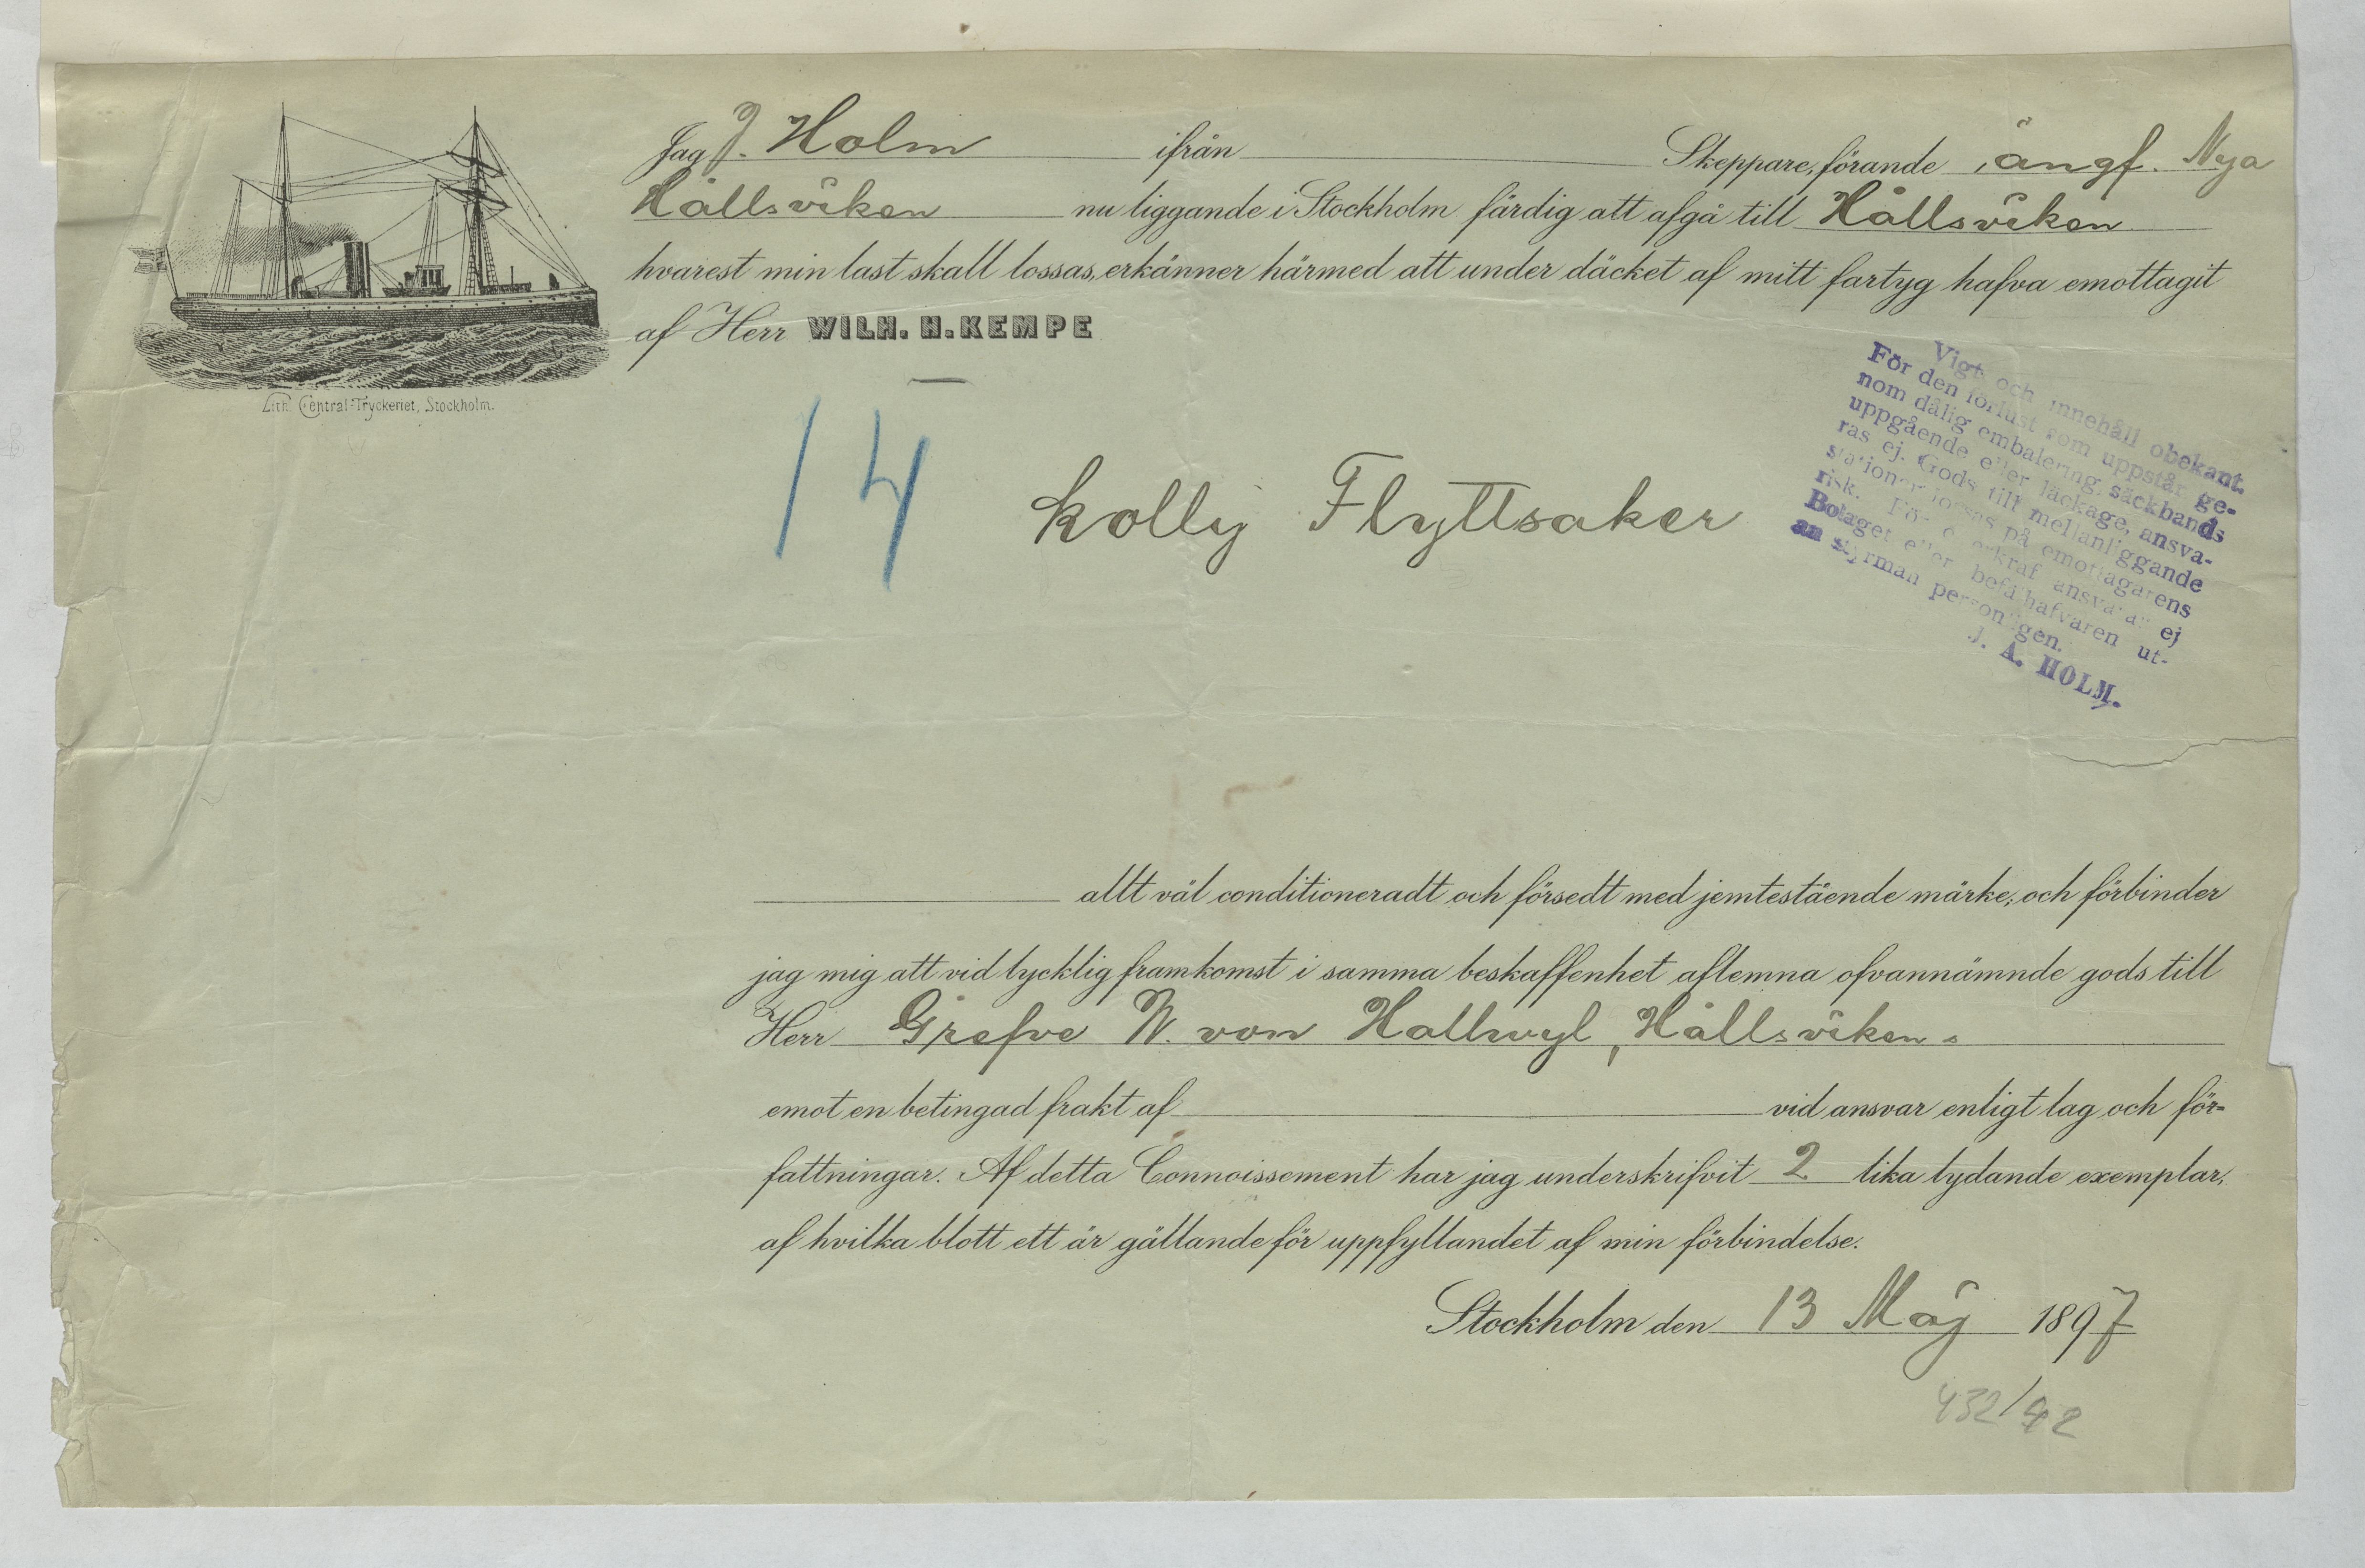 Jag J. Holm ifrån Skeppare, förande ångf. Nya
Hållsviken nu liggande i Stockholm färdig att afgå till Hållsviken
hvarest min last skall lossas, erkänner härmed att under däcket af mitt fartyg hafva emottagit
af Herr WILH. H. KEMPE
Lith. Central-Tryckeriet, Stockholm.
Vigt och innehåll obekant.
För den förlust som uppstår ge-
nom dålig embalering, säckbands
uppgående eller läckage, ansva-
ras ej. Gods till mellanliggande
stationer lossas på emottagarens
risk. För ansvarar ej
Bolaget eller befälhafvaren ut-
an styrman personligen.
J. A. HOLM.
14 kolly Flyttsaker
allt väl conditioneradt och försedt med jemtestående märke; och förbinder
jag mig att vid lycklig framkomst i samma beskaffenhet aflemna ofvannämnde gods till
Herr Grefve W. von Hallwyl, Hållsviken.
emot en betingad frakt af vid ansvar enligt lag och för-
fattningar. Af detta Connoissement har jag underskrifvit 2 lika lydande exemplar,
af hvilka blott ett är gällande för uppfyllandet af min förbindelse.
Stockholm den 13 Maj 1897
432/42